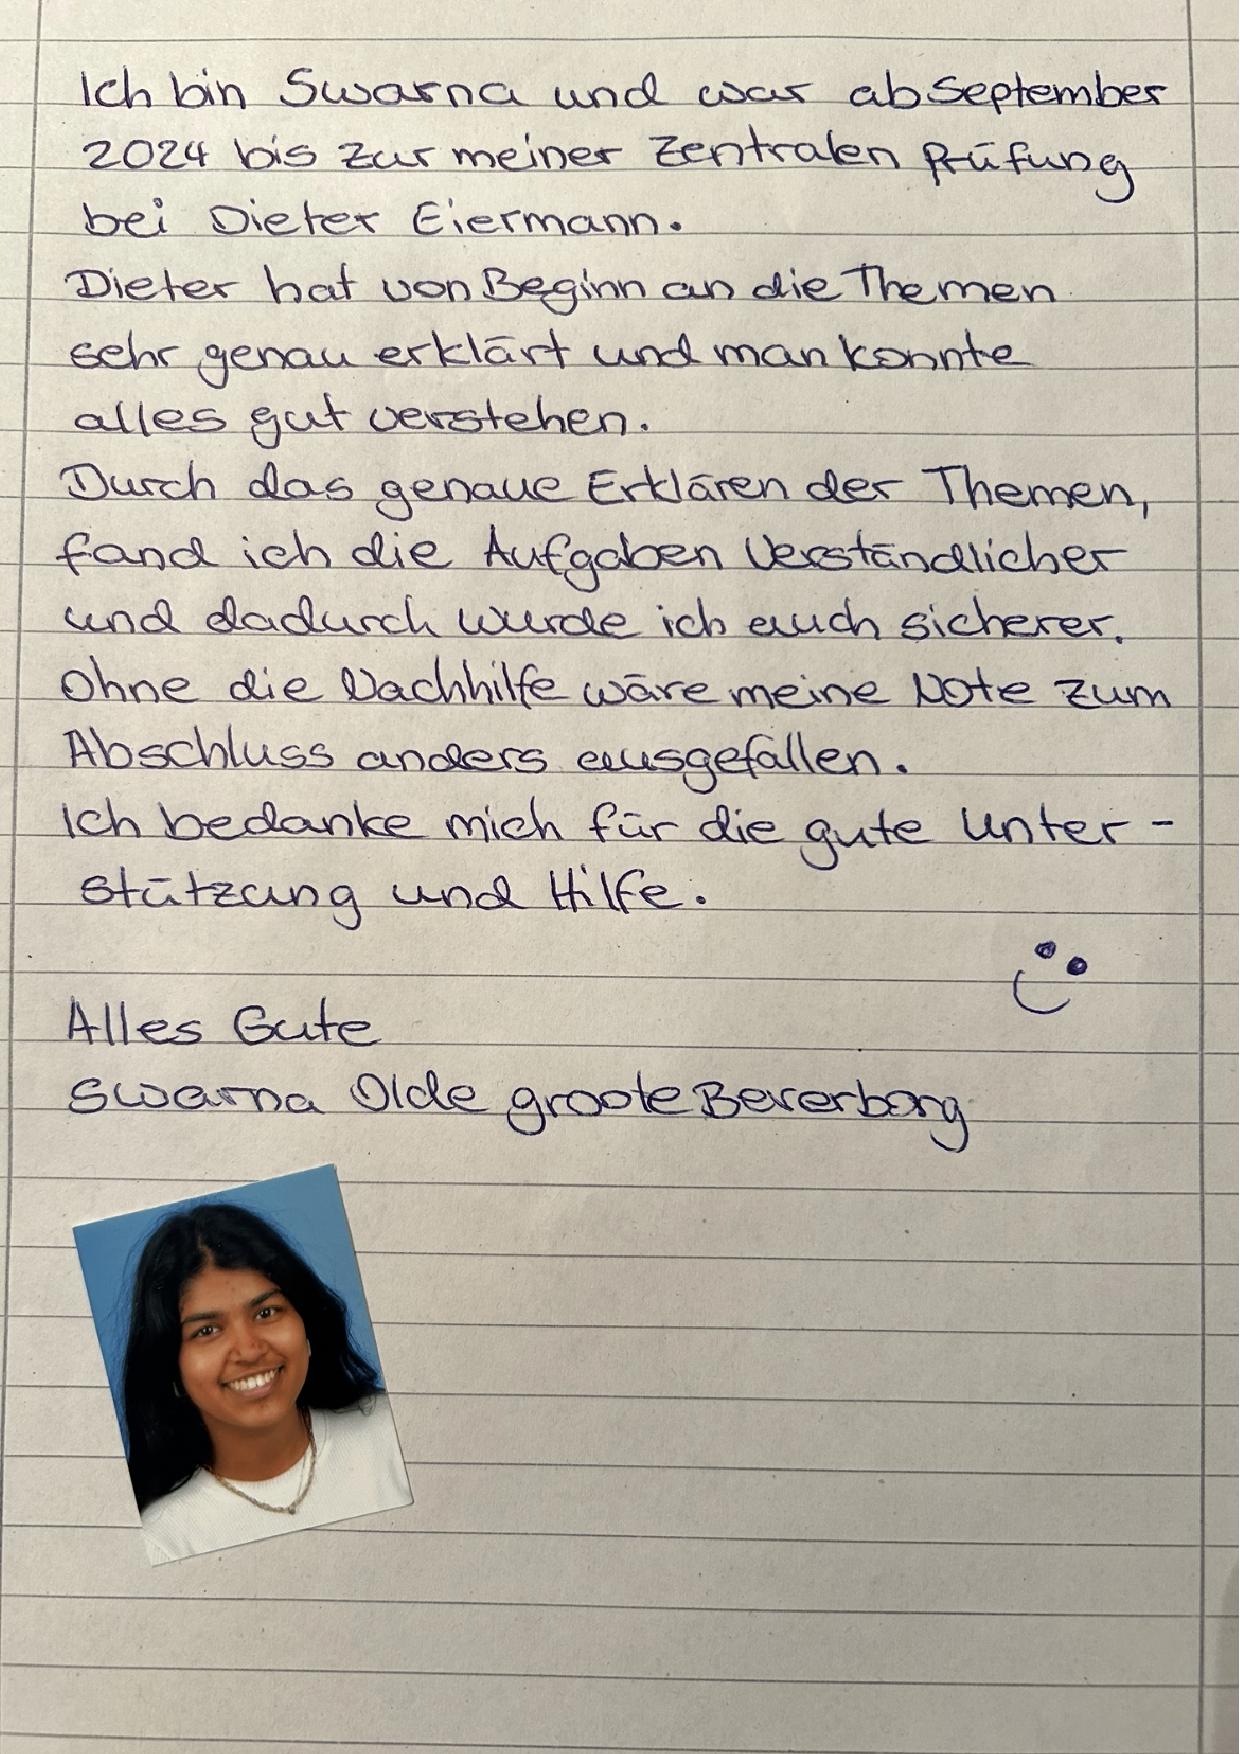 Ich bin Swarna und war ab September
2024 bis zur meiner Zentralen Prüfung
bei Dieter Eiermann.
Dieter hat von Beginn an die Themen
sehr genau erklärt und man konnte
alles gut verstehen.
Durch das genaue Erklären der Themen,
fand ich die Aufgaben Verständlicher
und dadurch wurde ich auch sicherer.
Ohne die Nachhilfe wäre meine Note zum
Abschluss anders ausgefallen.
Ich bedanke mich für die gute Unter-
stützung und Hilfe.
Alles Gute
Swarna Olde groote Beverborg